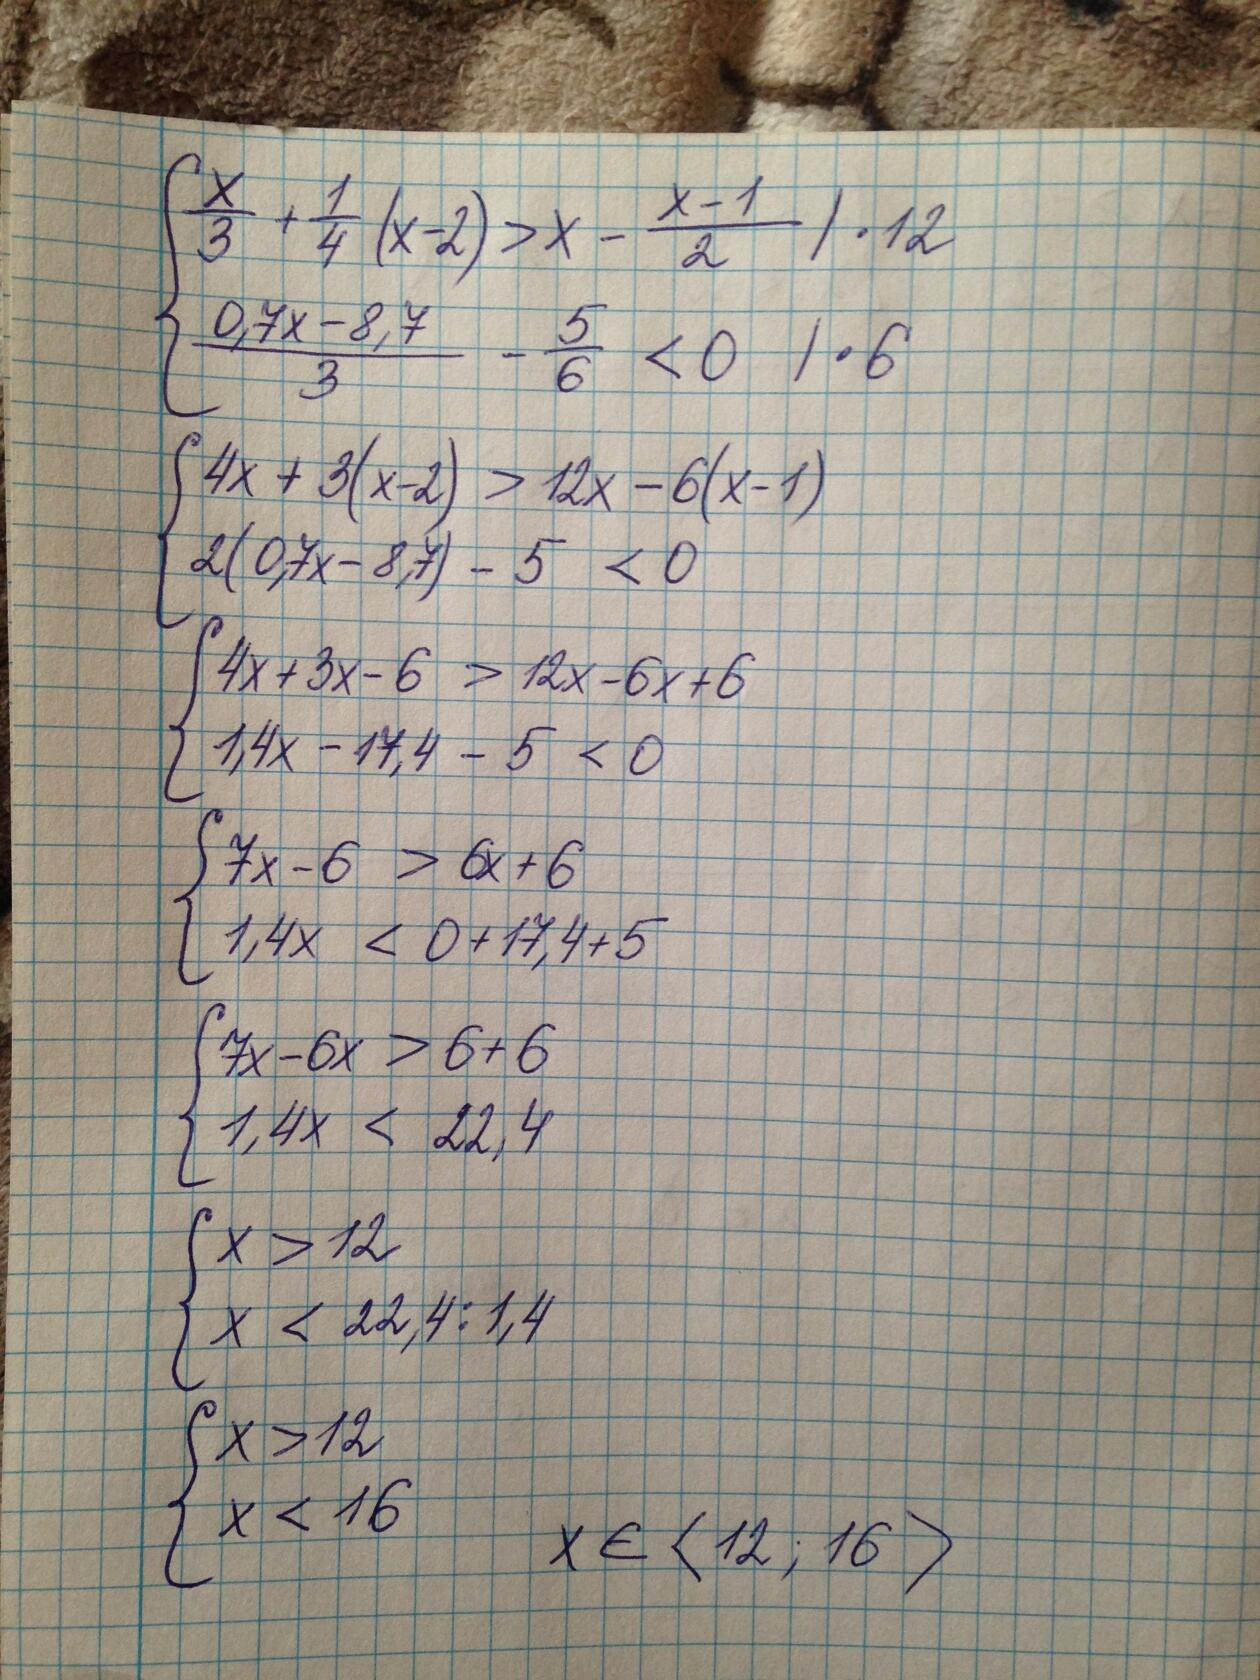 { x/3 + 1/4 (x-2) > x - (x-1)/2 | · 12
(0,7x - 8,7)/3 - 5/6 < 0 | · 6
{ 4x + 3(x-2) > 12x - 6(x-1)
2(0,7x - 8,7) - 5 < 0
{ 4x + 3x - 6 > 12x - 6x + 6
1,4x - 17,4 - 5 < 0
{ 7x - 6 > 6x + 6
1,4x < 0 + 17,4 + 5
{ 7x - 6x > 6 + 6
1,4x < 22,4
{ x > 12
x < 22,4 : 1,4
{ x > 12
x < 16
x ∈ ⟨12 ; 16⟩